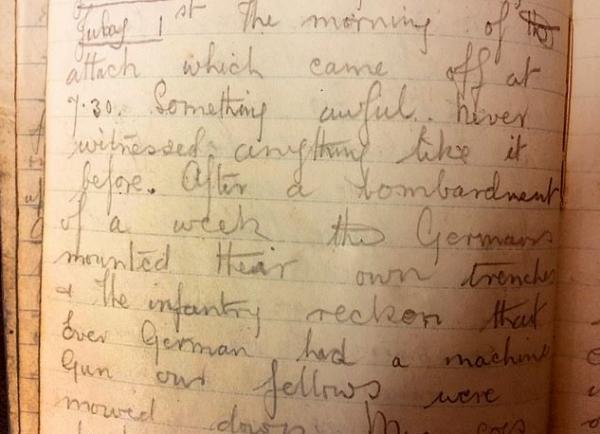 July 1st The morning of the
attack which came off at
7.30. Something awful. never
witnessed anything like it
before. After a bombardment
of a week the Germans
mounted their own trenches
& the infantry reckon that
Ever German had a machine
Gun our fellows were
mowed down